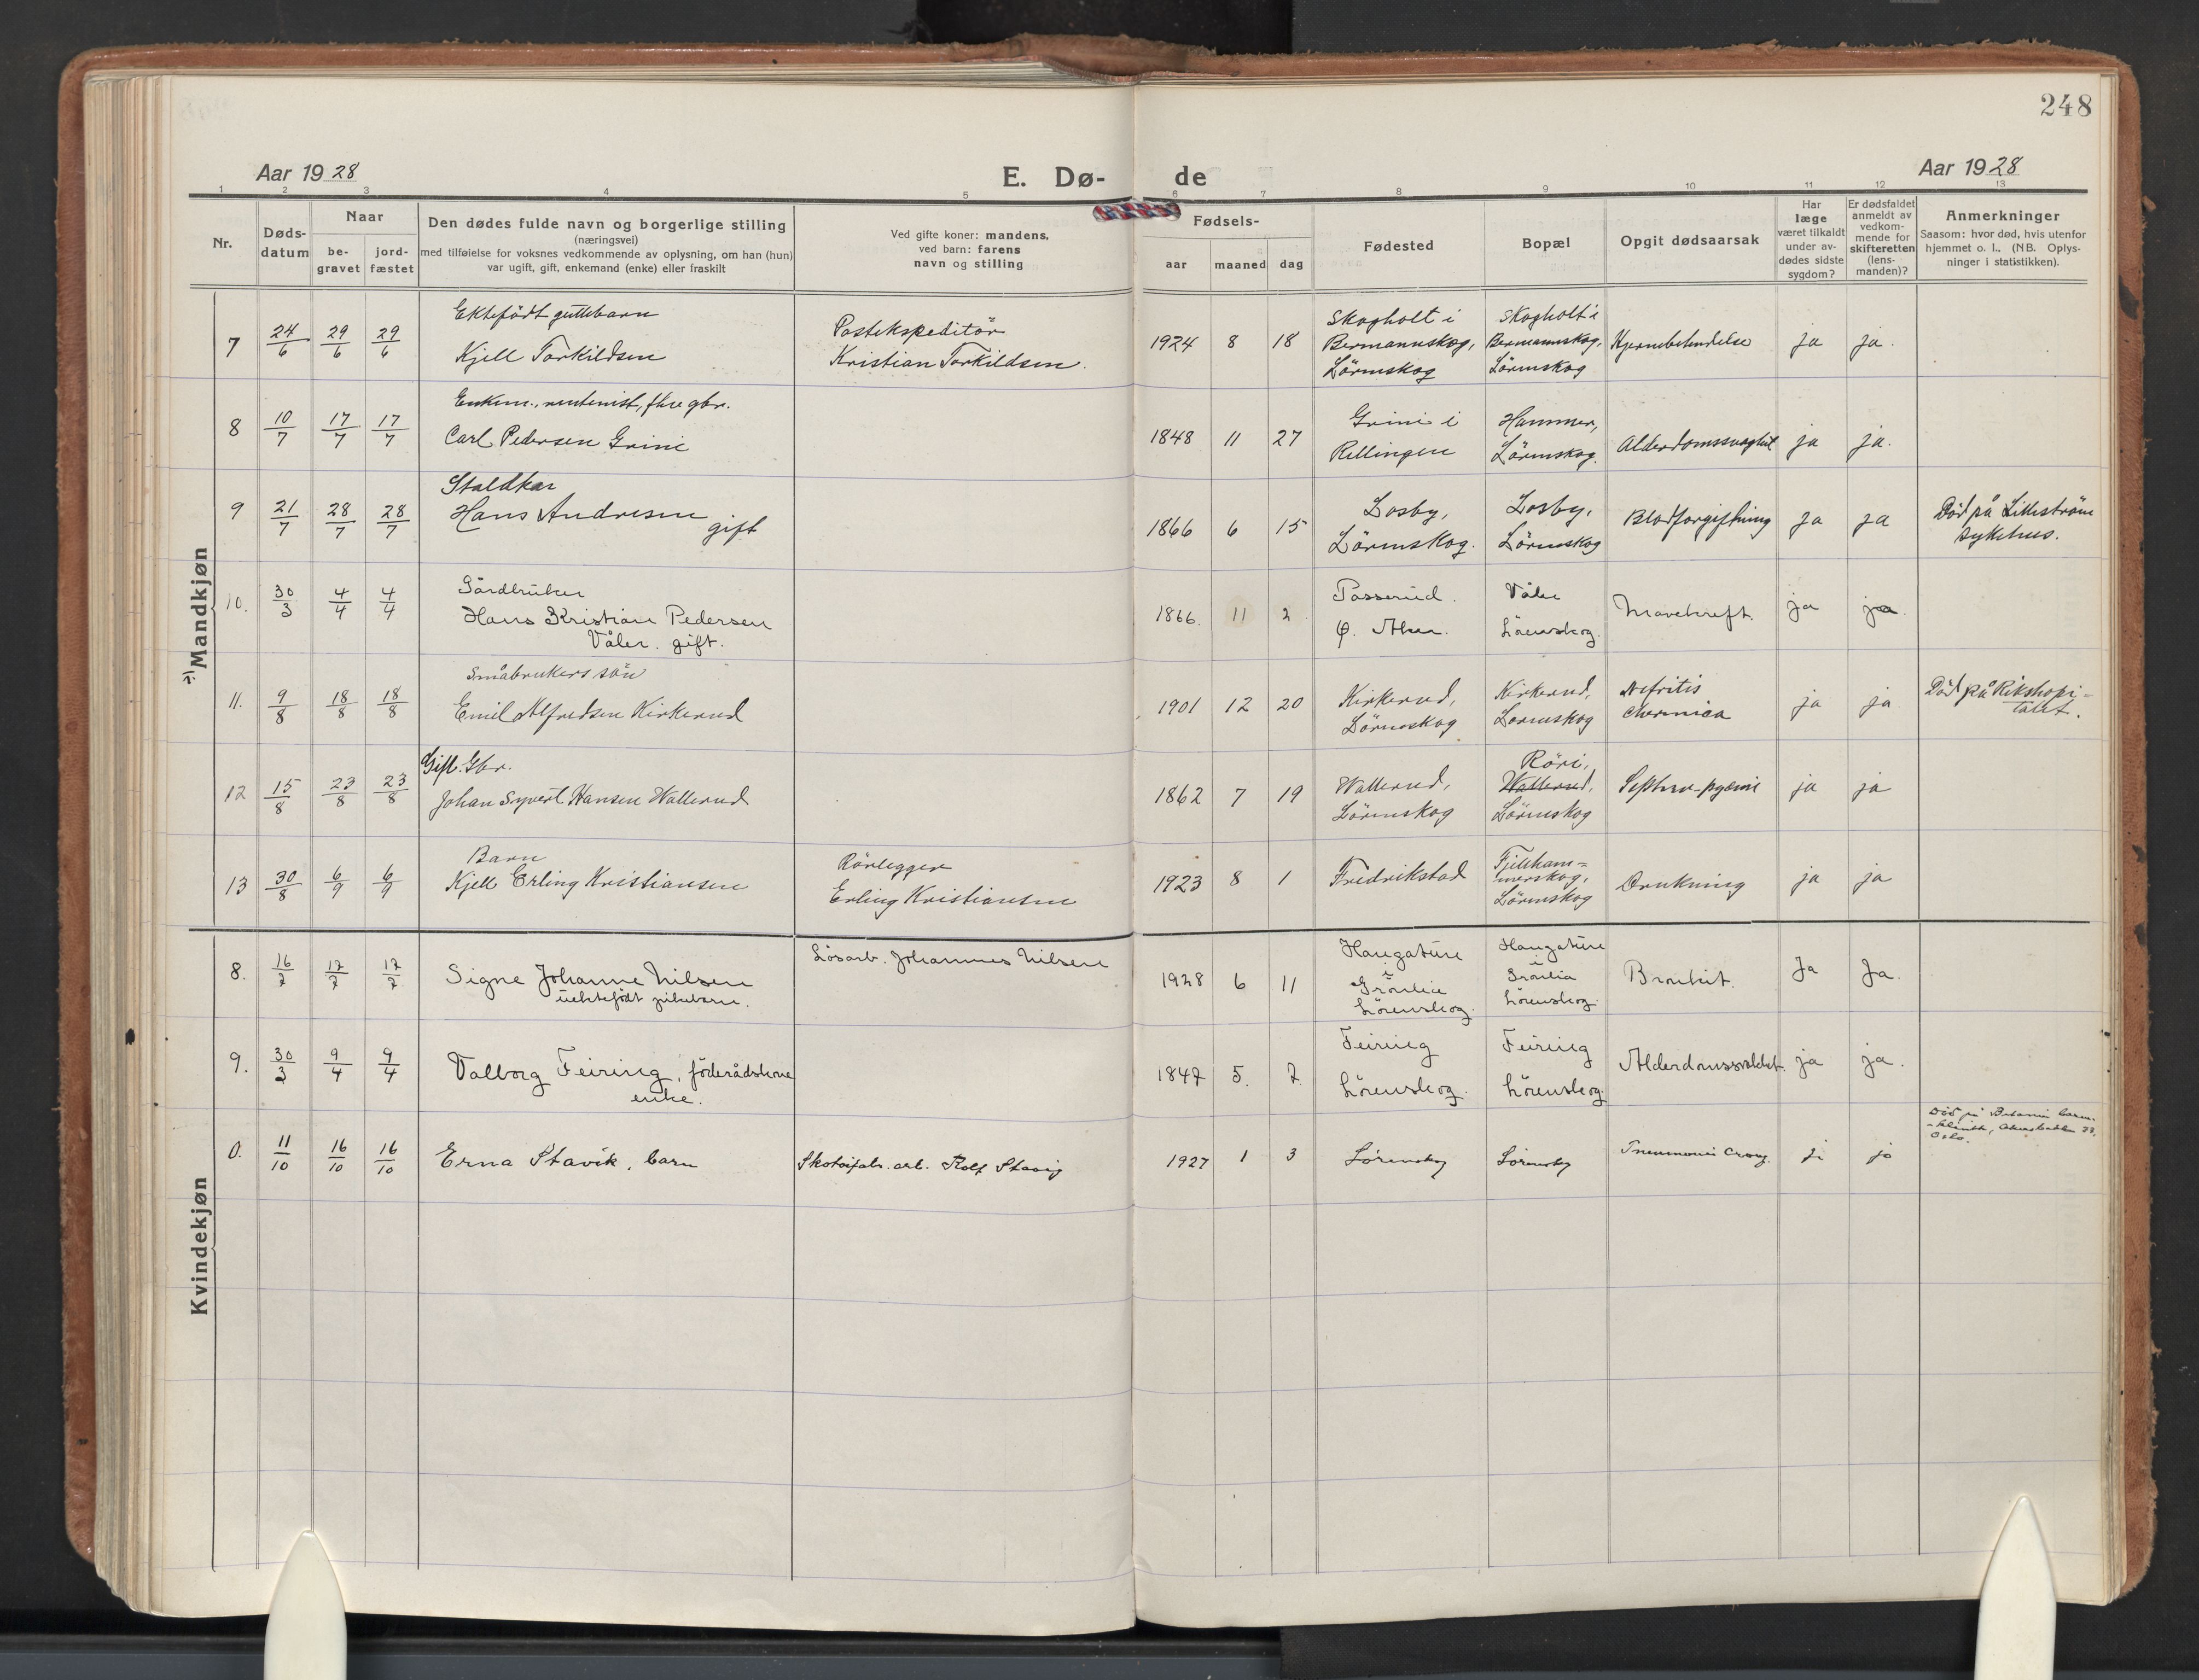 248
Aar 1928
E. Dø-
de
Aar 1928
1 2 3 4 5 6 7 8 9 10 11 12 13
Nr.
Døds-
datum
Naar
be-
gravet
jord-
fæstet
Den dødes fulde navn og borgerlige stilling
(næringsvei)
med tilføielse for voksnes vedkommende av oplysning, om han (hun)
var ugift, gift, enkemand (enke) eller fraskilt
Ved gifte koner: mandens,
ved barn: farens
navn og stilling
Fødsels-
aar maaned dag
Fødested
Bopæl
Opgit dødsaarsak
Har
læge
været tilkaldt
under av-
dødes sidste
sygdom?
Er dødsfaldet
anmeldt av
vedkom-
mende for
skifteretten
(lens-
manden)?
Anmerkninger
Saasom: hvor død, hvis utenfor
hjemmet o. l., (NB. Oplys-
ninger i statistikken).
Mandkjøn
7 24/6 29/6 29/6
Ektefödt guttebarn
Kjell Torkildsen
Postekspeditör
Kristian Torkildsen.
1924 8 18
Skogholt i
Bermannskog,
Lörenskog
Skogholt i
Bermannskog,
Lörenskog
Hjernebetendelse
ja ja.
8 10/7 17/7 17/7
Enkem., rentenist, fhv. gbr.
Carl Pedersen Grini
1848 11 27
Grini i
Rellingen
Hammer,
Lörenskog.
Alderdomssvaghet
ja ja.
9 21/7 28/7 28/7
Staldkar
Hans Andresen
gift
1866 6 15
Losby,
Lörenskog.
Losby,
Lörenskog
Blodforgiftning
ja ja
Död på Lilleström
sykehus.
10. 30/3 4/4 4/4
Gårdbruker
Hans Kristian Pedersen
Våler. gift.
1866. 11 2
Passerud.
Ø. Aker.
Våler
Lörenskog.
Mavekreft.
ja ja.
11. 9/8 18/8 18/8
Småbrukers sön
Emil Alfredsen Kirkerud
1901 12 20
Kirkerud,
Lörenskog
Kirkerud,
Lorenskog
Nefritis
chronica
ja ja
Död på Rikshopi-
talet.
12 15/8 23/8 23/8
Gift. Gbr.
Johan Syvert Hansen Wallerud
1862 7 19
Wallerud,
Lörenskog
Röri,
Wallerud,
Lörenskog
-pyæmi
ja ja
13 30/8 6/9 6/9
Barn
Kjell Erling Kristiansen
Rörlegger
Erling Kristiansen
1923 8 1
Fredrikstad
Fjellham=
merskog,
Lörenskog
Drukning
ja ja
Kvindekjøn
8. 16/7 17/7 17/7
Signe Johanne Nilsen
uektefödt pikebarn.
Lösarb. Johannes Nilsen
1928 6 11
Haugature
i
Grönlia
Lörenskog.
Haugature
i
Grönlia
Lörenskog.
Bronkit.
Ja Ja.
9. 30/3 9/4 9/4
Valborg Feiring, föderådskone
enke.
1847 5. 7.
Feiring
Lörenskog.
Feiring
Lörenskog.
ja ja.
0. 11/10 16/10 16/10
Erna Stavik, barn
Skotöifabr. arb. Rolf Stavig
1927 1 3
Lörenskog
Lörenskog
Pneumonia Croup.
ja ja
Död på Betanien barne-
-klinikk,
Oslo.